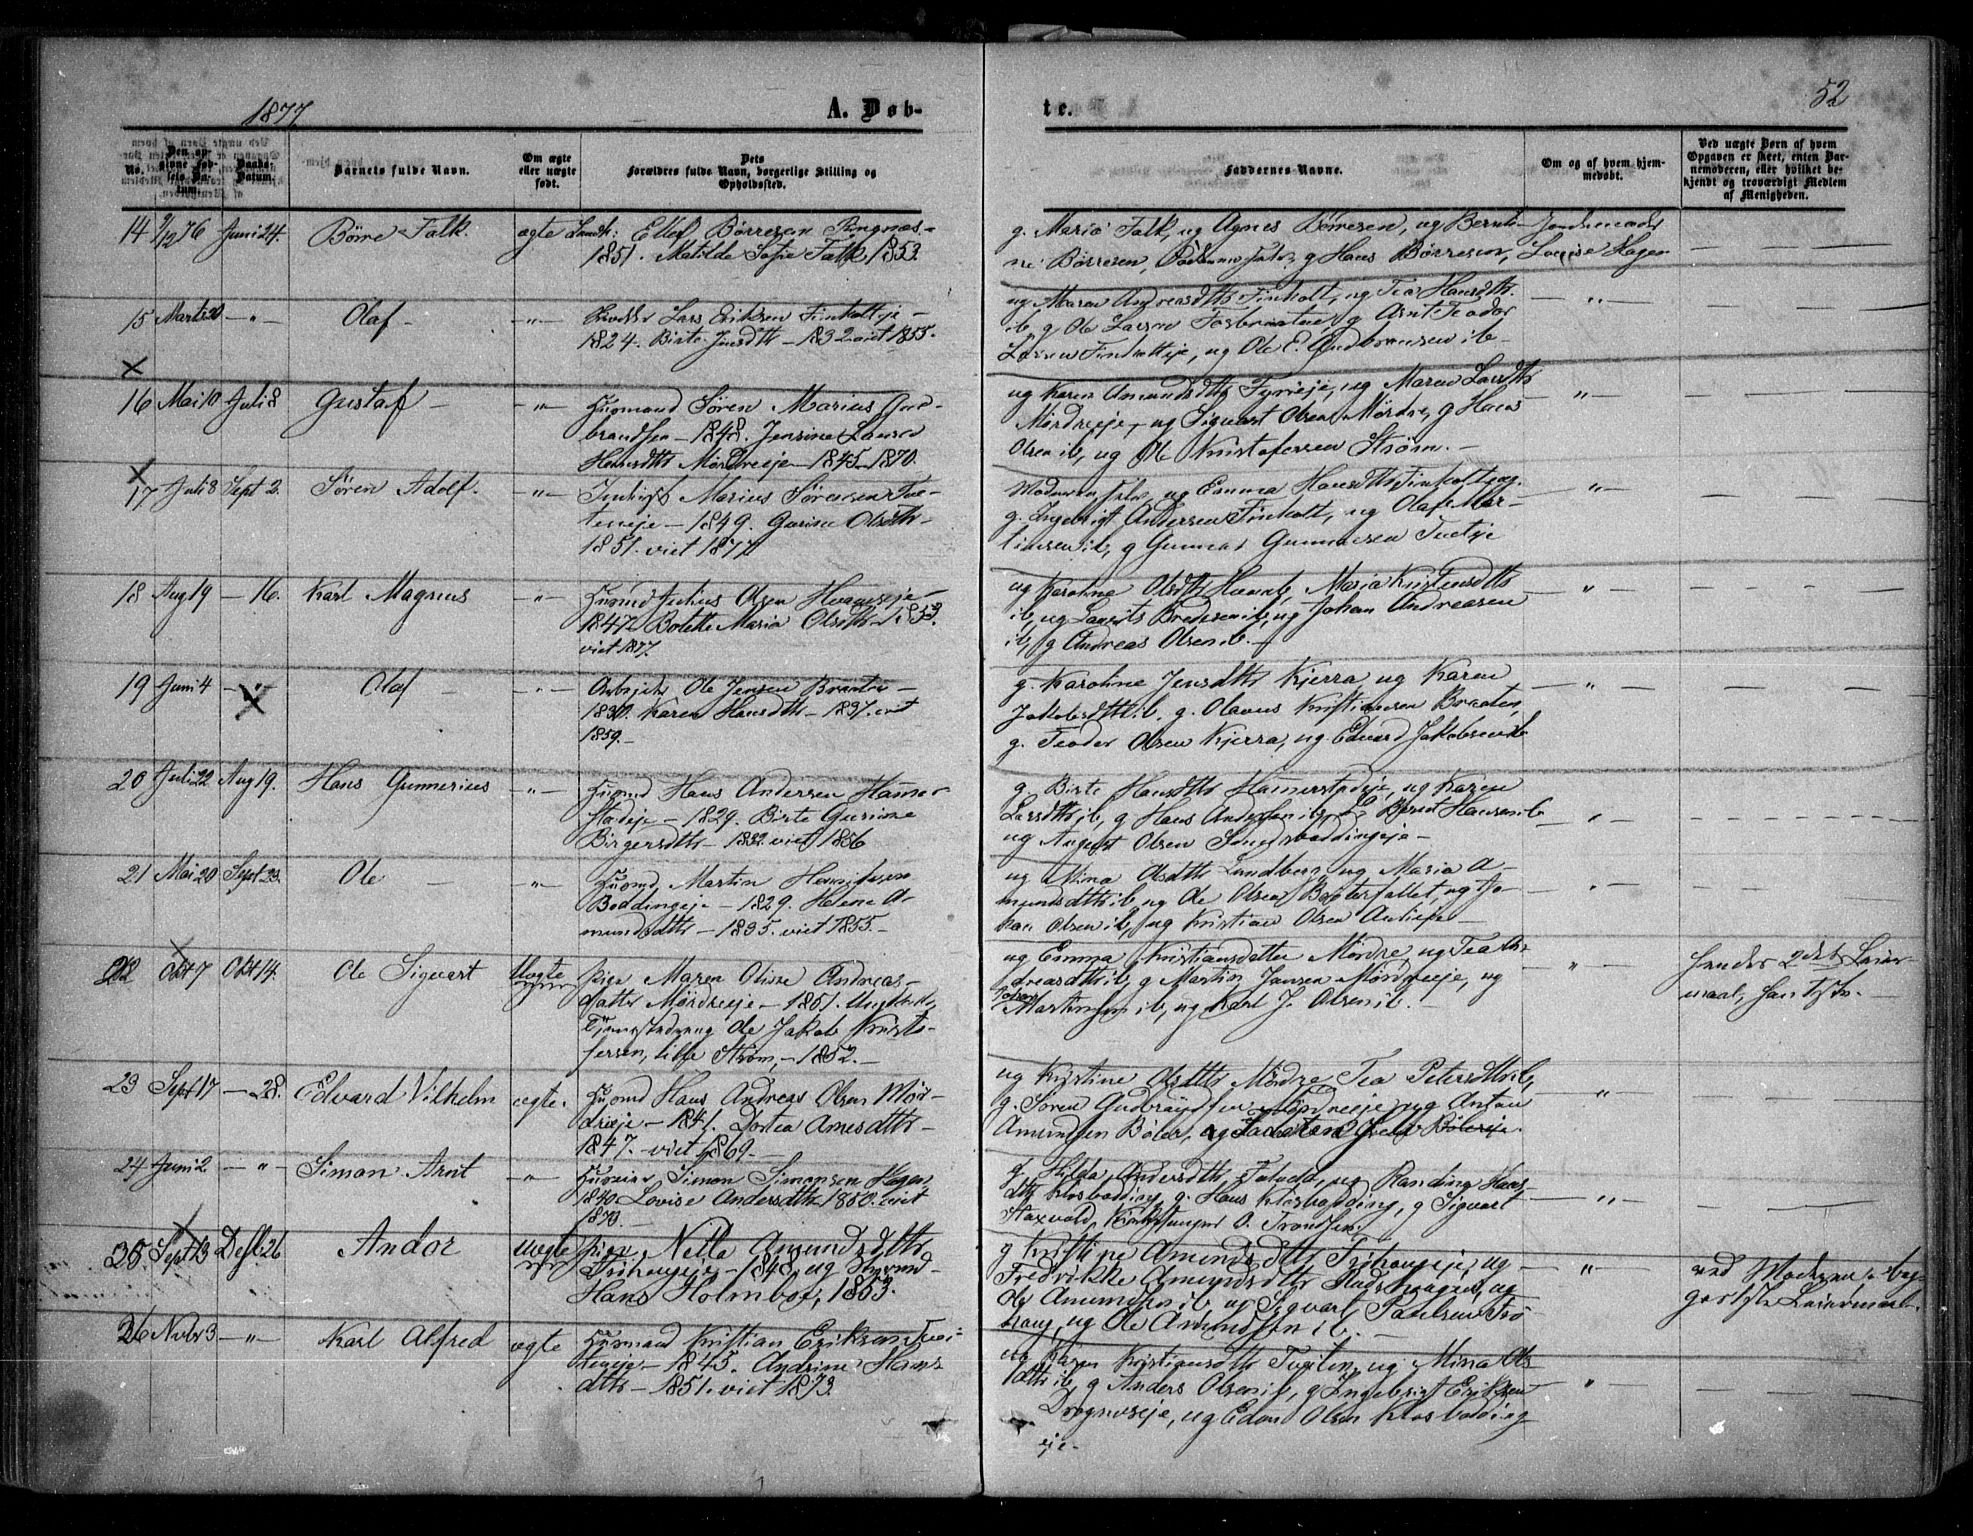 1877
A. Døb-
te.
52
No.
Den opgivne Fødsels Datum.
Daabs-Datum.
Barnets fulde Navn.
Om ægte eller uægte født.
Dets Forældres fulde Navn, borgerlige Stilling og Opholdssted.
Faddernes Navne.
Om og af hvem hjemmedøbt.
Ved uægte Børn af hvem Opgaven er skeet, enten Barnemoderen, eller hvilket bekjendt og troværdigt Medlem af Menigheden.
14 9/12 76 Juni 24. Børre Falk. ægte
Børresen
1851. Matilde Sofie Falk, 1853.
g. Maria Falk, ug Agnes Børresen, ug Bernti-
ne Børresen, g Hans Børresen, Louise Hagen
15 Marts 20 — " — Olaf — — " —
Lars Eriksen Finholteje —
1824. Birte Jensdtr — 1832 viet 1855.
ug Maren Andreasdtr Finholt, ug Tea Hansdtr.
ib, g Ole Larsen Fosbraaten, g Arnt Teodor
Larsen Finholteje, ug Ole E. Gudbrandsen ib —
16 Mai 10 Juli 8 Gustaf — — " —
Husmand Søren Marius Gud-
brandsen — 1848. Jensine Lovise
Hansdtr Mørdreeje — 1845 — 1870.
ug Karen Amundsdtr ug Maren Larsdtr
Mørdreeje, ug Sigvart Olsen Mørdre, g Hans
Olsen ib, ug Ole Kristofersen Strøm. —
17 Juli 8 Sept 2. Søren Adolf. — " —
Marius Sørensen Tve-
teneje — 1849. Gurine Olsdtr —
1851. viet 1877
Moderen ug Emma Hansdtr Finholt
g. Ingebrigt Andersen Finholt, ug Olaf Mar-
tinsen ib, g Gunnar Gunnarsen
18 Aug 19 — 16. Karl Magnus — " —
Husmd Julius Olsen
1847 Bolette Maria Olsdtr — 1853.
viet 1877.
ug Karoline Olsdtr Maria Kristensdtr
ib, ug Laurits Bredesen ib, ug Johan Andreasen
ib, g Andreas Olsen ib. —
19 Juni 4 — " — Olaf — " —
Ole Jensen Braaten —
1830. Karen Hansdtr — 1837. viet
1859. —
g. Karoline Jensdtr Kjerra ug Karen
Jakobsdtr ib. g. Olavus Kristiansen Braaten,
g. Teodor Olsen Kjerra, ug Edvard Jakobsen ib
20 Juli 22 Aug 19. Hans Gunnerius — " —
Husmd Hans Andersen Hamer-
stadeje — 1829. Birte Gurine
Birgersdtr — 1832. viet 1856
g. Birte Hansdtr Hamerstadeje, ug Karen
Larsdtr ib, g Hans Andersen ib, Bernt Hansen ib
ug August Olsen
21 Mai 20 Sept 23. Ole — — " —
Husmd. Martin Henriksen
Boddingeje — 1829. Helene A-
mundsdtr — 1835. viet 1855. —
ug Mina Olsdtr Lundberg, ug Maria A-
mundsdtr ib, ug Ole Olsen ug Jo-
han Olsen ib, ug Kristian Olsen
22 Okt 7 Okt 14. Ole Sigvart Uægte
Pige Maren Oline Andreas-
datter Mørdreeje — 1851. Ungkarl,
ug Ole Jakob Kristo-
fersen, lille Strøm, — 1852. —
ug Emma Kristiansdatter Mørdre, ug Tea An-
dreasdtr ib, g Martin Jansen Mørdreeje, ug
Johan
Martinsen ib, ug Karl J. Olsen ib. —
hendes 2det Leier-
maal, hans 1ste. —
23 Sept 17 — 28. Edvard Vilhelm ægte.
Husmd Hans Andreas Olsen Mør-
dreeje — 1841. Dortea Arnesdtr —
1847. — viet 1869. —
ug Kristine Olsdtr Mørdre, Tea Petersdtr ib,
g. Søren Gudbrandsen Mørdreeje, ug Anton
Amundsen Bøler, ug
24 Juni 2 — " — Simon Arnt — " —
Simon Simonsen Hagen,
1840. Lovise Andersdtr 1850. viet
1870. —
g. Hilda Andersdtr ug Randine Hans-
dtr Klosbodding, g. Hans Klosbodding, g Sigvart
Haxvold, Kirkesanger O. Trondsen.
25 Sept 13 Desb. 26 Andor Uægte
Pige Nella Amundsdtr
1848, ug
Hans Holmboe, 1853.
g Kristine Amundsdtr ug
Fredrikke Amundsdtr ug
Ole Amundsen ib, ug Sigvart Paulsen Frø-
haug, ug Ole Amundsen ib. —
ved Moderen, beg-
ges 1ste Leiermaal.
26 Novbr 3 — " — Karl Alfred ægte
Husmand Kristian Eriksen Tvei-
teneje — 1845. Andrine Hans-
dtr — 1851. viet 1873.
ug Karen Kristiansdtr Tveiten, ug Mina Ols-
dtr ib, g Anders Olsen ib, g Ingebrigt Eriksen
Drognæseje, ug Edvard Olsen Klosbodding
eje —